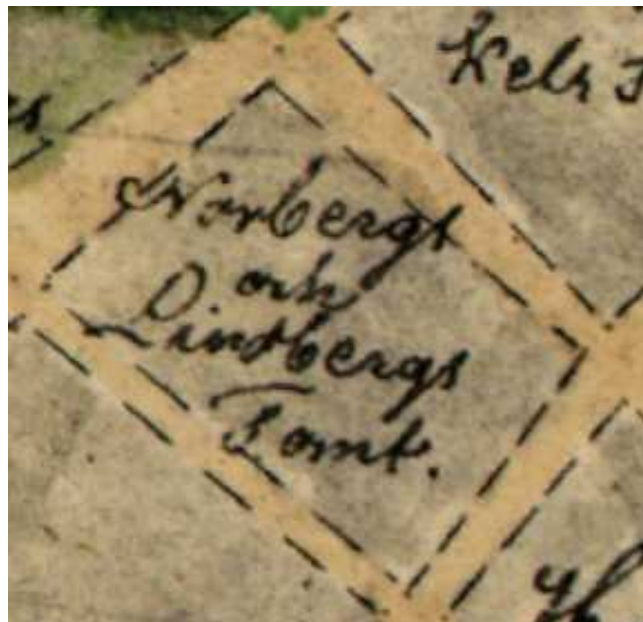 Norbergs
och
Lindbergs
Tomt.